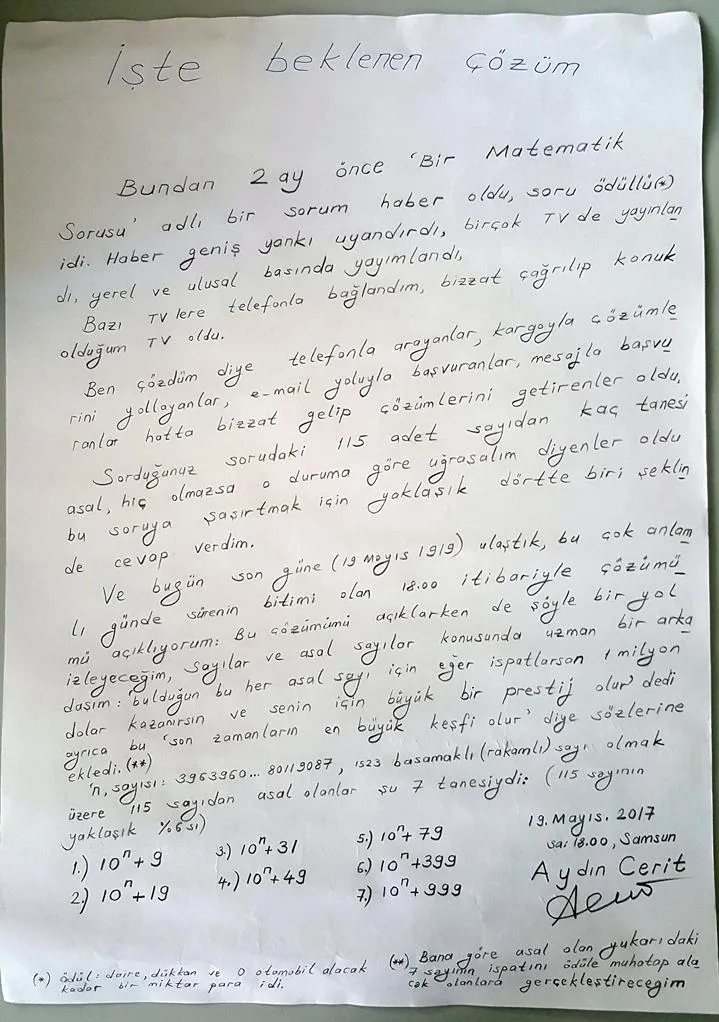 İşte beklenen çözüm
Bundan 2 ay önce 'Bir Matematik
Sorusu' adlı bir sorum haber oldu, soru ödüllü(*)
idi. Haber geniş yankı uyandırdı, birçok TV de yayınlan
dı, yerel ve ulusal basında yayımlandı,
Bazı TV lere telefonla bağlandım, bizzat çağrılıp konuk
olduğum TV oldu.
Ben çözdüm diye telefonla arayanlar, kargoyla çözümle
rini yollayanlar, e-mail yoluyla başvuranlar, mesajla başvu
ranlar hatta bizzat gelip çözümlerini getirenler oldu,
Sorduğunuz sorudaki 115 adet sayıdan kaç tanesi
asal, hiç olmazsa o duruma göre uğraşalım diyenler oldu
bu soruya şaşırtmak için yaklaşık dörtte biri şeklin
de cevap verdim.
Ve bugün son güne (19 Mayıs 1919) ulaştık, bu çok anlam
lı günde sürenin bitimi olan 18.00 itibariyle çözümü
mü açıklıyorum: Bu çözümümü açıklarken de şöyle bir yol
izleyeceğim, sayılar ve asal sayılar konusunda uzman bir arka
daşım: bulduğun bu her asal sayı için eğer ispatlarsan 1 milyon
dolar kazanırsın ve senin için büyük bir prestij olur' dedi
ayrıca bu 'son zamanların en büyük keşfi olur' diye sözlerine
ekledi. (**)
'n, sayısı: 3963960... 80119087, 1523 basamaklı (rakamlı) sayı olmak
üzere 115 sayıdan asal olanlar şu 7 tanesiydi: (115 sayının
yaklaşık %6 sı)
1.) 10ⁿ+9
2.) 10ⁿ+19
3.) 10ⁿ+31
4.) 10ⁿ+49
5.) 10ⁿ+79
6.) 10ⁿ+399
7.) 10ⁿ+999
19. Mayıs. 2017
Sa: 18.00, Samsun
Aydın Cerit
(*) ödül: daire, dükkan ve 0 otomobil alacak
kadar bir miktar para idi.
(**) Bana göre asal olan yukarıdaki
7 sayının ispatını ödüle muhatap ala
cak olanlara gerçekleştireceğim